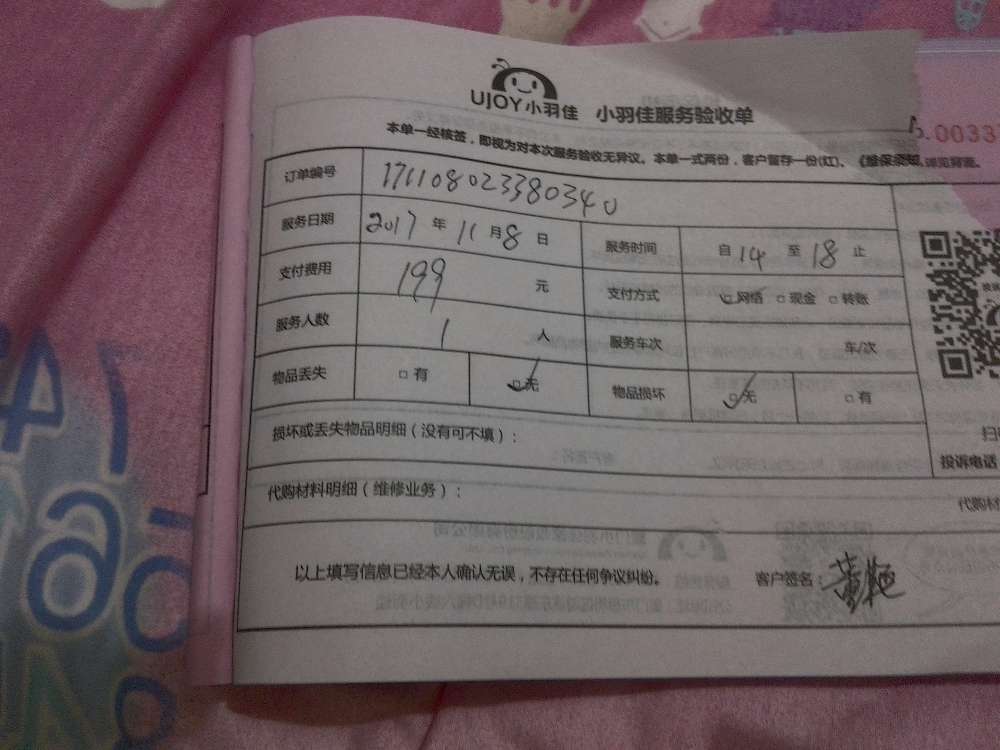 UJOY小羽佳 小羽佳服务验收单
0033
本单一经核签，即视为对本次服务验收无异议。本单一式两份，客户留存一份(红)。《维保须知》详见背面。
订单编号 171108023380340
服务日期 2017 年 11 月 8 日 服务时间 自 14 至 18 止
支付费用 199 元 支付方式 网络 现金 转账
服务人数 1 人 服务车次 车/次
物品丢失 有 无 物品损坏 无 有
损坏或丢失物品明细（没有可不填）：
扫
投诉电话
代购材料明细（维修业务）：
代购材
以上填写信息已经本人确认无误，不存在任何争议纠纷。 客户签名：